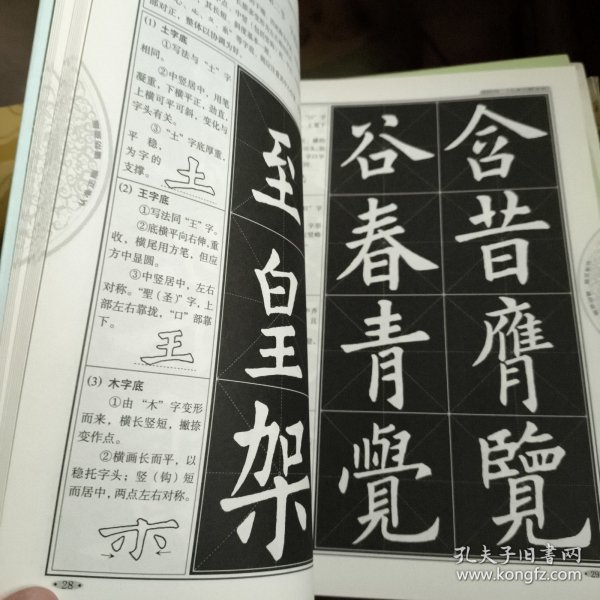 部对正，整体以协调为好。
(1) 土字底
①写法与“土”字
相同。
②中竖居中，用笔
凝重，下横平正，劲直，
上横可平可斜，变化与
字头有关。
③“土”字底厚重，
平稳，
为字的
支撑。
土
(2) 王字底
①写法同“王”字。
②底横平向右伸，重
收，横尾用方笔，但应
方中显圆。
③中竖居中，左右
对称。“聖(圣)”字，上
部左右靠拢，“口”部靠
下。
王
(3) 木字底
①由“木”字变形
而来，横长竖短，撇捺
变作点。
②横画长而平，以
稳托字头；竖（钩）短
而居中，两点左右对称。
至
皇
架
28
谷 含
春 昔
青 膺
覺 覽
29
孔夫子旧书网
www.kongfz.com